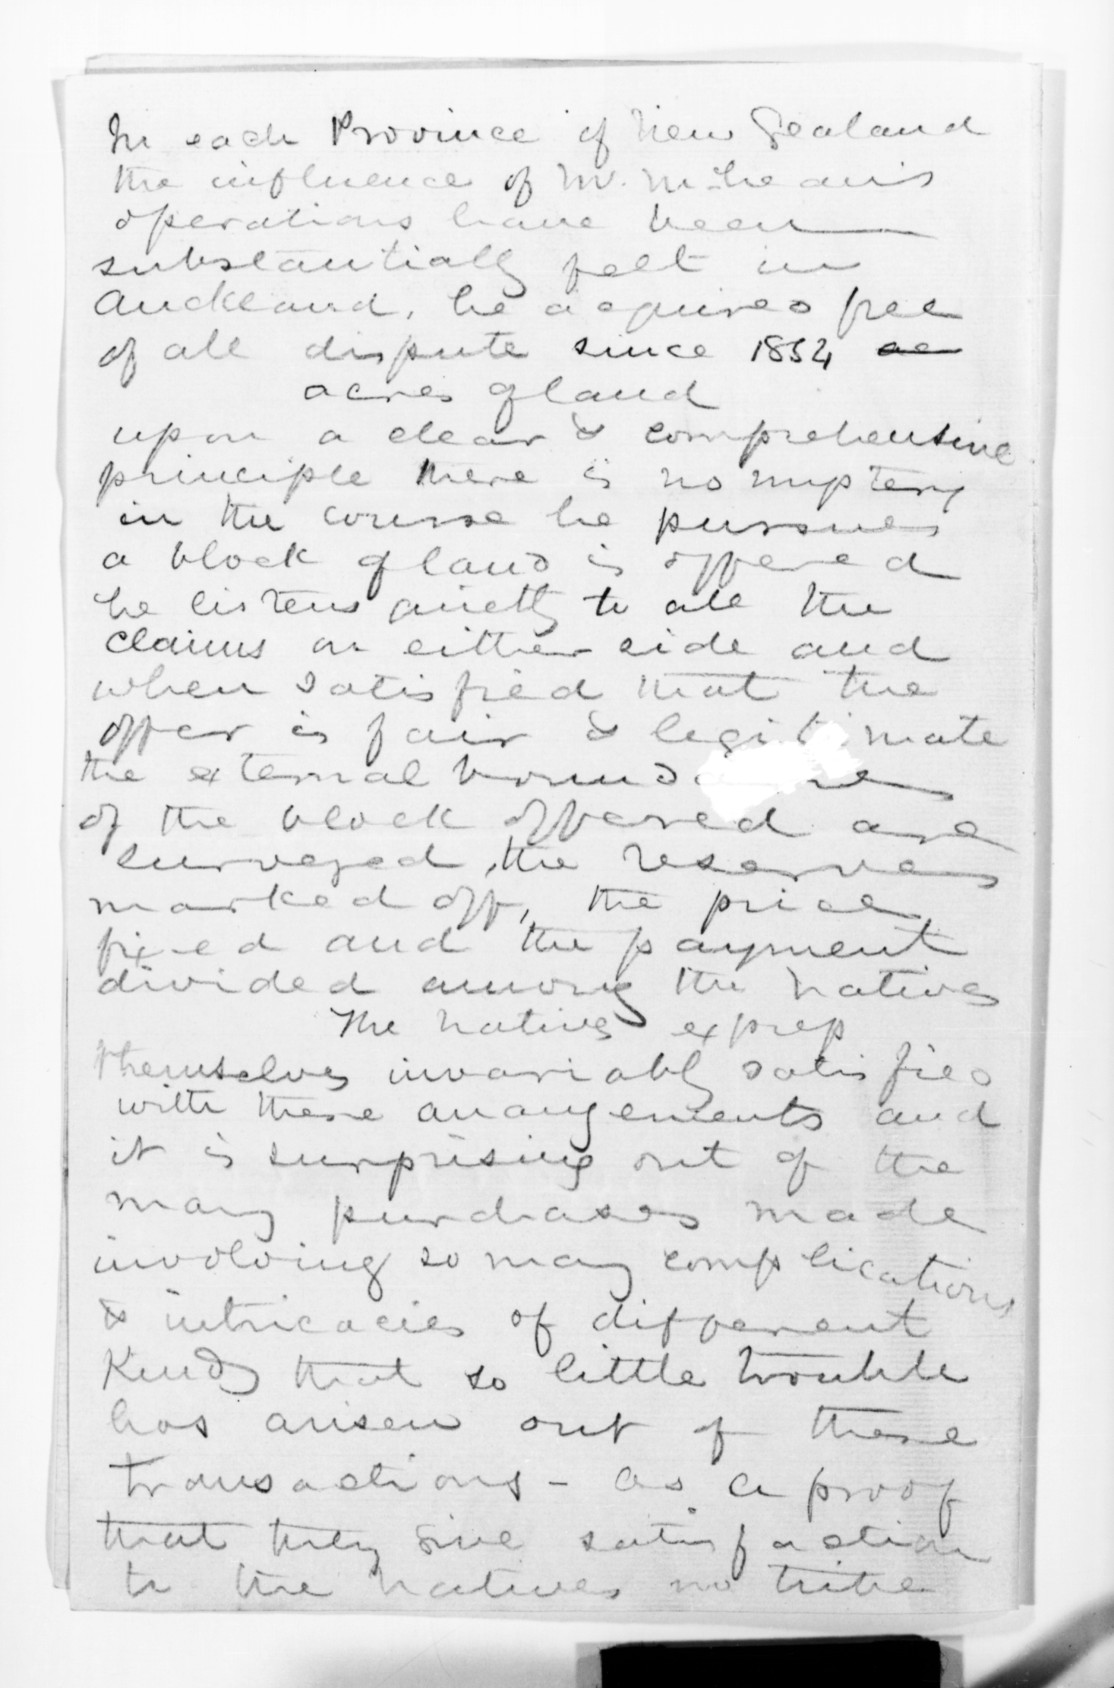 In each Province of New Zealand
the influence of Mr. McLean's
operations have been
substantially felt in
Auckland, he acquired free
of all dispute since 1854 ae
acres of land
upon a clear & comprehensive
principle there is no mystery
in the course he pursues
a block of land is offered
he listens quietly to all the
claims on either side and
when satisfied that the
offer is fair & legitimate
the external
of the block offered are
surveyed, the reserves
marked off, the price
fixed and the payment
divided among the natives
The natives express
themselves invariably satisfied
with these arrangements and
it is surprising out of the
many purchases made
involving so many complications
& intricacies of different
Kinds that so little trouble
has arisen out of these
transactions - as a proof
that they give satisfaction
to the natives no tribe